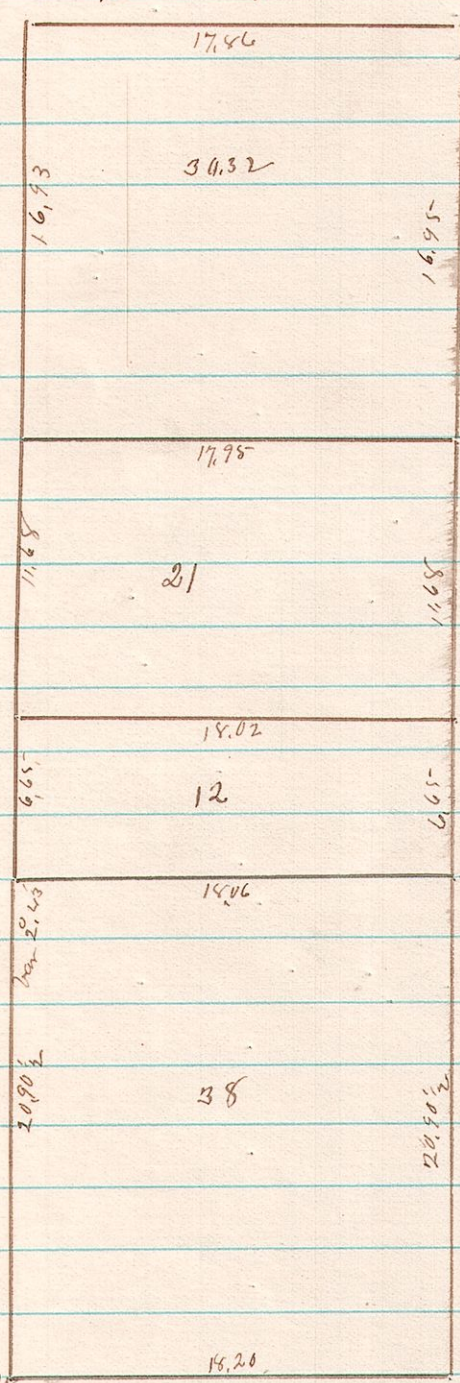 17.86
16.93
30.32
16.95
17.95
11.68
21
11.68
18.02
6.65
12
6.65
18.06
var 2°.43'
20.90½
38
20.90½
18.20